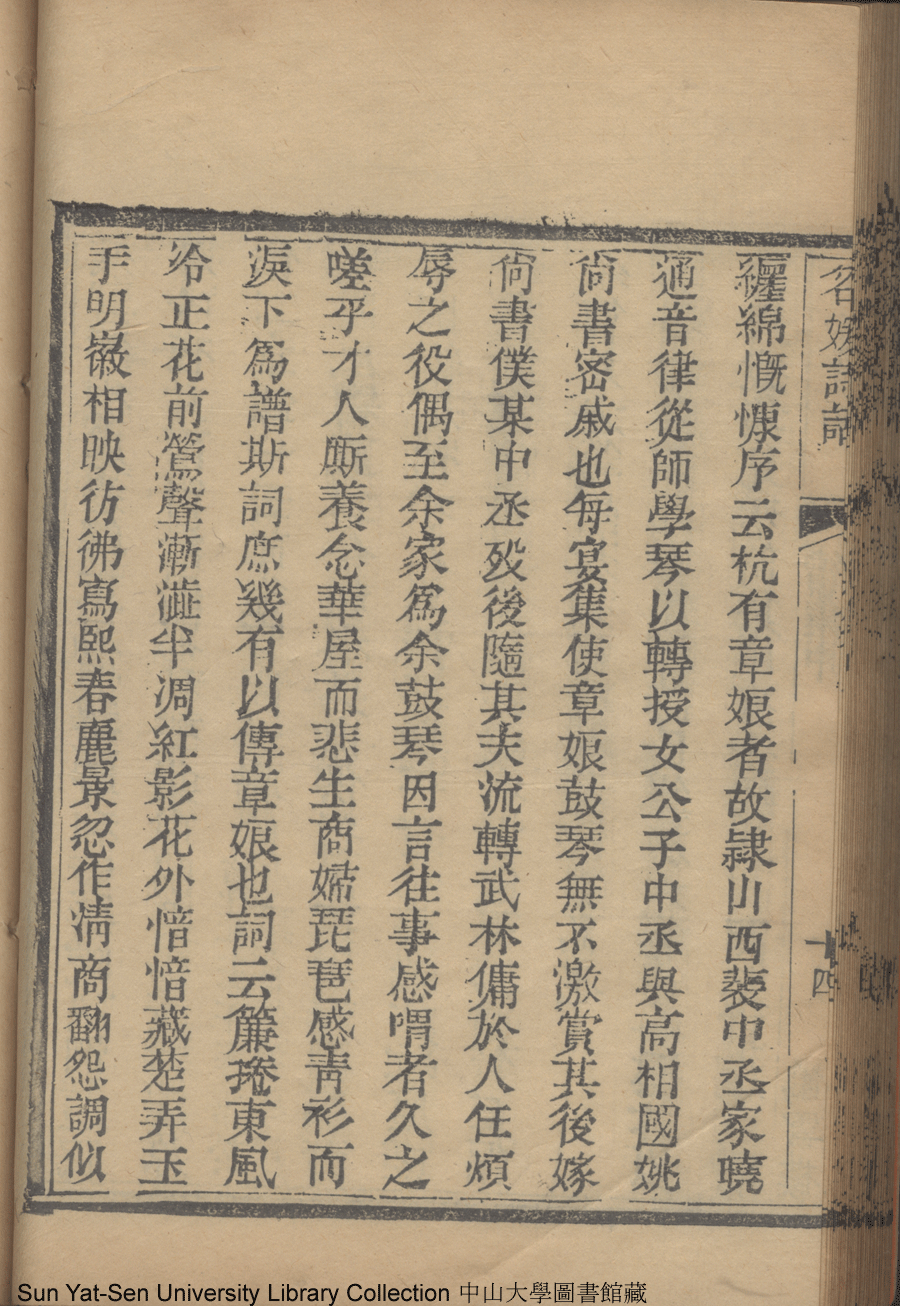 名媛詩話
十四
纒綿慨慷序云杭有章娘者故隷山西裴中丞家曉
通音律從師學琴以轉授女公子中丞與高相國姚
尙書密戚也每宴集使章娘鼓琴無不激賞其後嫁
尙書僕某中丞歿後隨其夫流轉武林傭於人任煩
辱之役偶至余家爲余鼓琴因言往事感喟者久之
嗟乎才人厮養念華屋而悲生商婦琵琶感靑衫而
淚下爲譜斯詞庶幾有以傳章娘也詞云簾捲東風
冷正花前鶯聲漸澁半凋紅影花外愔愔藏楚弄玉
手明徽相映彷彿寫熙春麗景忽作淸商翻怨調似
Sun Yat-Sen University Library Collection 中山大學圖書館藏